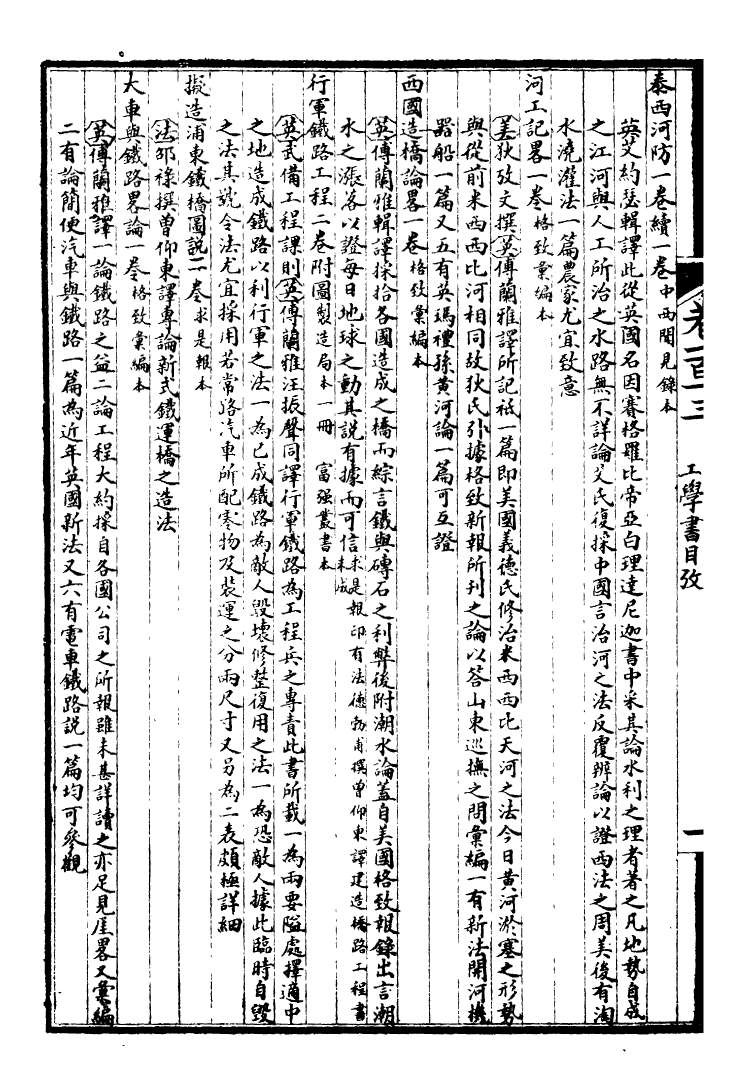 泰西河防一卷續一卷中西聞見錄本
英艾約瑟輯譯此從英國名因賽格羅比帝亞白理達尼迦書中采其論水利之理者著之凡地勢自成
之江河與人工所治之水路無不詳論艾氏復採中國言治河之法反覆辨論以證西法之周美後有淘
水澆灌法一篇農家尤宜致意
河工記畧一卷格致彙編本
美狄攷文撰英傅蘭雅譯所記祇一篇即美國義德氏修治米西西比天河之法今日黄河淤塞之形勢
與從前米西西比河相同故狄氏引據格致新報所刊之論以答山東巡撫之問彙編一有新法開河機
器船一篇又五有英瑪禮孫黄河論一篇可互證
西國造橋論畧一卷格致彙編本
英傅蘭雅輯譯採拾各國造成之橋而綜言鐵與磚石之利弊後附潮水論蓋自美國格致報錄出言潮
水之漲落以證每日地球之動其説有據而可信求是報印有法德勃甫撰曾仰東譯建造橋路工程書未成
行軍鐵路工程二卷附圖製造局本一冊 富强叢書本
英武備工程課則英傅蘭雅汪振聲同譯行軍鐵路為工程兵之專責此書所載一為兩要隘處擇適中
之地造成鐵路以利行軍之法一為已成鐵路為敵人毁壞修整復用之法一為恐敵人據此臨時自毁
之法其號令法尤宜採用若常路汽車所配零物及裝運之分兩尺寸又另為二表頗極詳細
擬造浦東鐵橋圖説二卷求是報本
法邵祿撰曾仰東譯專論新式鐵運橋之造法
大車與鐵路畧論一卷格致彙編本
英傅蘭雅譯一論鐵路之益二論工程大約採自各國公司之所報雖未甚詳讀之亦足見厓畧又彙編
二有論簡便汽車與鐵路一篇為近年英國新法又六有電車鐵路説一篇均可參觀
卷一百十三 工學書目攷
一